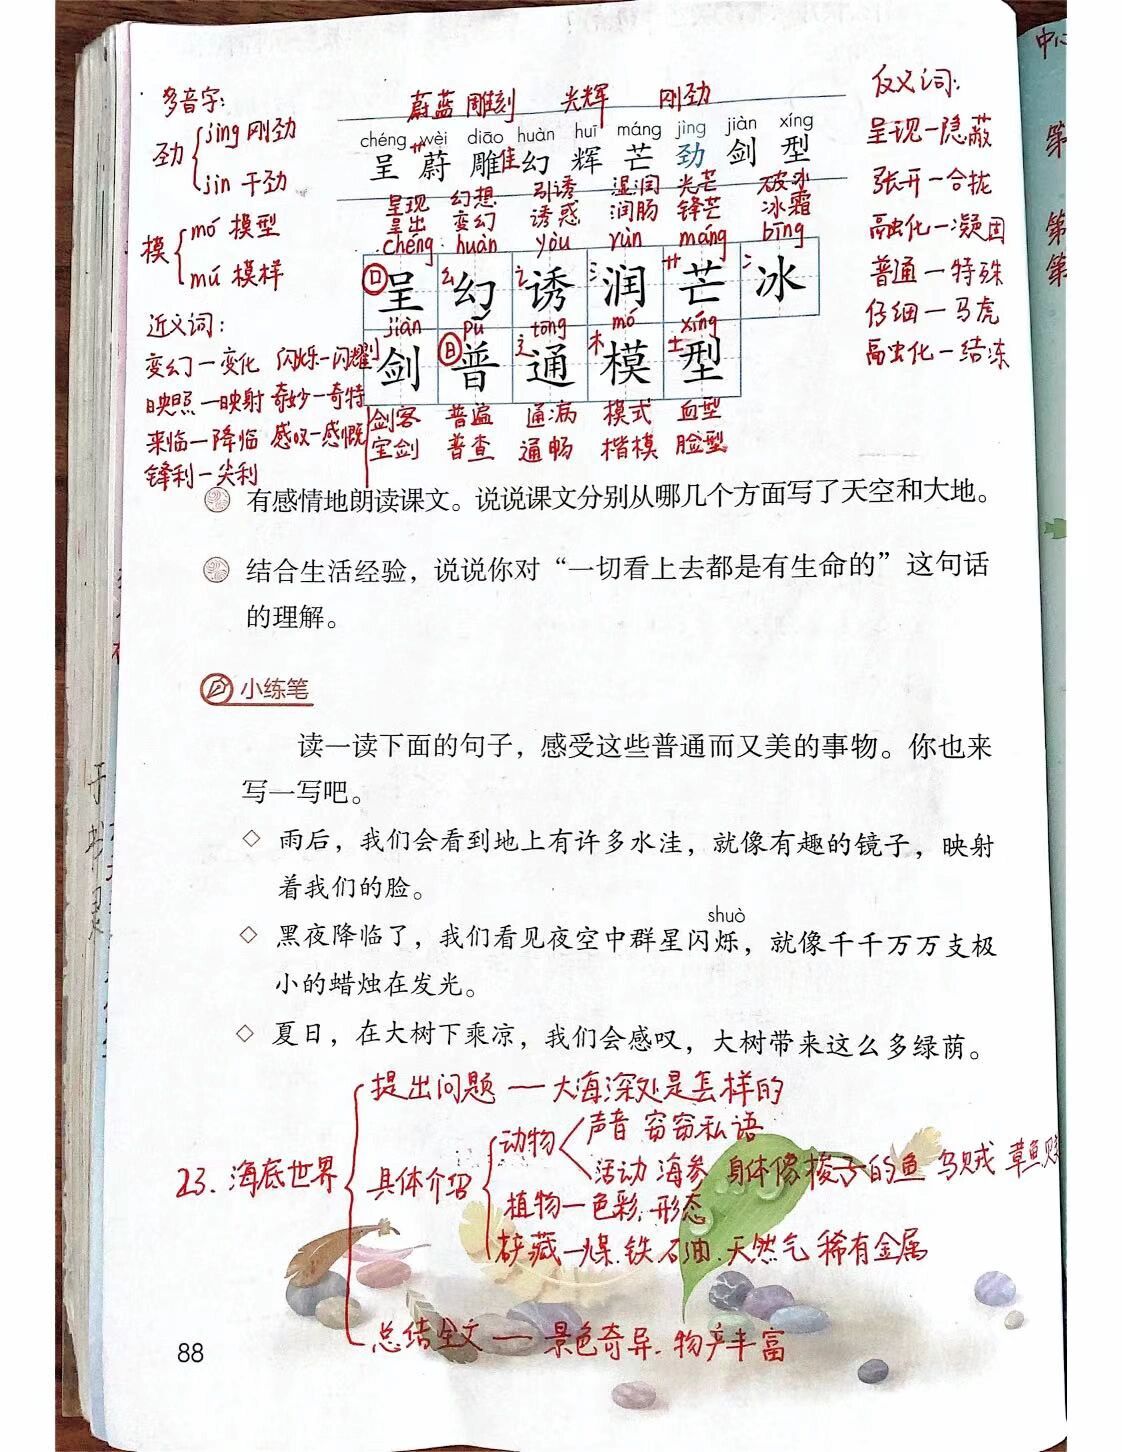 多音字:
劲 jìng 刚劲
jìn 干劲
模 mó 模型
mú 模样
近义词:
变幻—变化 闪烁—闪耀
映照—映射 奇妙—奇特
来临—降临 感叹—感慨
锋利—尖利
蔚蓝 雕刻 光辉 刚劲
chéng wèi diāo huàn huī máng jìng jiàn xíng
呈 艹 蔚 雕 隹 幻 辉 芒 劲 剑 型
呈现 幻想 引诱 湿润 光芒 破冰
呈出 变幻 诱惑 润肠 锋芒 冰霜
chéng huàn yòu rùn máng bīng
口 呈 幺 幻 讠 诱 氵 润 艹 芒 冫 冰
jiàn pǔ tōng mó xíng
刂 剑 日 普 辶 通 木 模 土 型
剑客 普遍 通病 模式 血型
宝剑 普查 通畅 楷模 脸型
反义词:
呈现—隐蔽
张开—合拢
融化—凝固
普通—特殊
仔细—马虎
融化—结冻
中心
第
第
第
有感情地朗读课文。说说课文分别从哪几个方面写了天空和大地。
结合生活经验，说说你对“一切看上去都是有生命的”这句话
的理解。
小练笔
读一读下面的句子，感受这些普通而又美的事物。你也来
写一写吧。
◇ 雨后，我们会看到地上有许多水洼，就像有趣的镜子，映射
着我们的脸。
shuò
◇ 黑夜降临了，我们看见夜空中群星闪烁，就像千千万万支极
小的蜡烛在发光。
◇ 夏日，在大树下乘凉，我们会感叹，大树带来这么多绿荫。
23.海底世界
提出问题 — 大海深处是怎样的
具体介绍
动物 声音 窃窃私语
活动 海参 身体像梭子的鱼 乌贼 章鱼 贝
植物—色彩.形态
矿藏—煤.铁.石油.天然气 稀有金属
总结全文 — 景色奇异.物产丰富
88